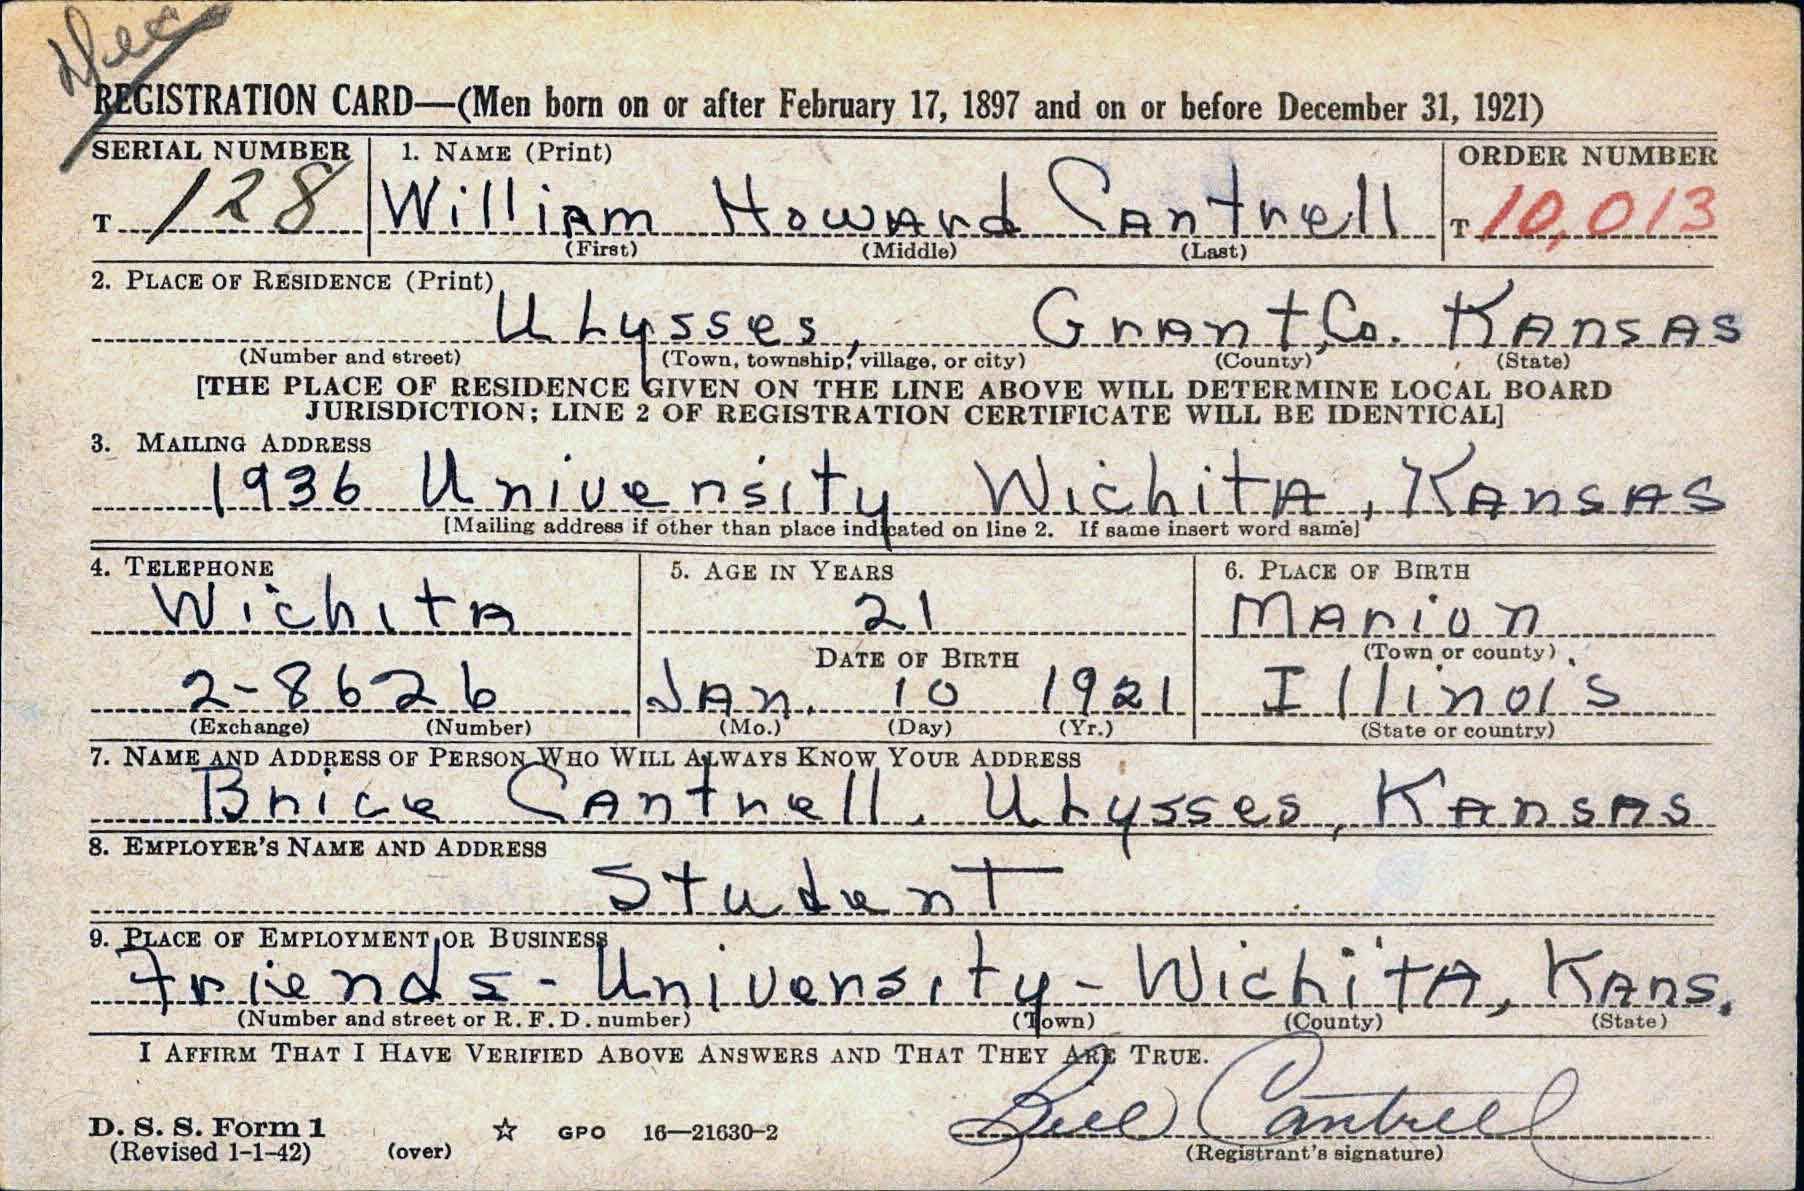 Dec
REGISTRATION CARD—(Men born on or after February 17, 1897 and on or before December 31, 1921)
SERIAL NUMBER 1. NAME (Print) ORDER NUMBER
T 128 William Howard Cantrell T 10,013
(First) (Middle) (Last)
2. PLACE OF RESIDENCE (Print)
ULysses, Grant, Co. Kansas
(Number and street) (Town, township, village, or city) (County) (State)
[THE PLACE OF RESIDENCE GIVEN ON THE LINE ABOVE WILL DETERMINE LOCAL BOARD
JURISDICTION; LINE 2 OF REGISTRATION CERTIFICATE WILL BE IDENTICAL]
3. MAILING ADDRESS
1936 University Wichita, Kansas
[Mailing address if other than place indicated on line 2. If same insert word same]
4. TELEPHONE 5. AGE IN YEARS 6. PLACE OF BIRTH
Wichita 21 Marion
DATE OF BIRTH (Town or county)
2-8626 Jan. 10 1921 Illinois
(Exchange) (Number) (Mo.) (Day) (Yr.) (State or country)
7. NAME AND ADDRESS OF PERSON WHO WILL ALWAYS KNOW YOUR ADDRESS
Brice Cantrell. ULysses, Kansas
8. EMPLOYER'S NAME AND ADDRESS
Student
9. PLACE OF EMPLOYMENT OR BUSINESS
Friends - University - Wichita, Kans.
(Number and street or R. F. D. number) (Town) (County) (State)
I AFFIRM THAT I HAVE VERIFIED ABOVE ANSWERS AND THAT THEY ARE TRUE.
Bill Cantrell
D. S. S. Form 1
(Revised 1-1-42) (over) ☆ GPO 16—21630-2 (Registrant's signature)